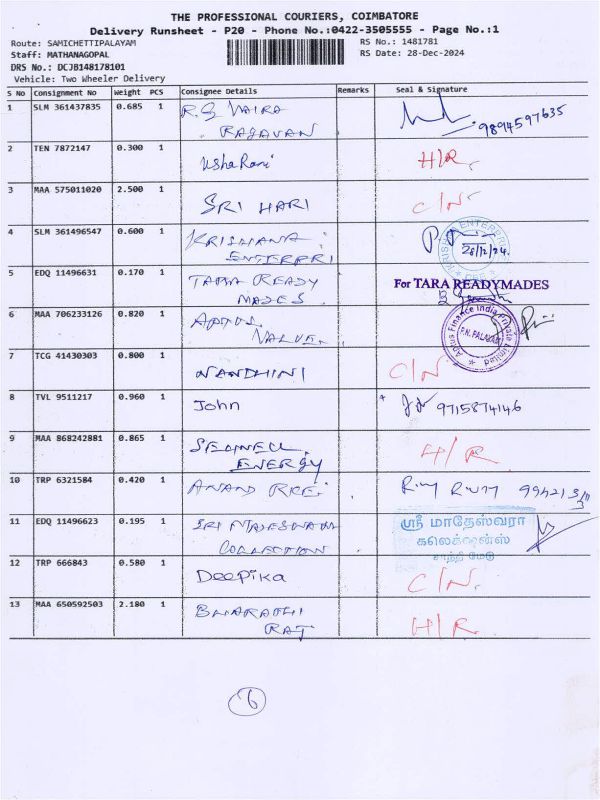 THE PROFESSIONAL COURIERS, COIMBATORE
Delivery Runsheet - P20 - Phone No.:0422-3505555 - Page No.:1
Route: SAMICHETTIPALAYAM RS No.: 1481781
Staff: MATHANAGOPAL RS Date: 28-Dec-2024
DRS No.: DCJB148178101
Vehicle: Two Wheeler Delivery
S No Consignment No Weight PCS Consignee Details Remarks Seal & Signature
1 SLM 361437835 0.685 1 R.G VAIRA
RAGAVAN 9894597635
2 TEN 7872147 0.300 1 Usha Rani H/R
3 MAA 575011020 2.500 1 SRI HARI C/N
4 SLM 361496547 0.600 1 KRISHANA
ENTERPRI 28/12/24
5 EDQ 11496631 0.170 1 TARA READY For TARA READYMADES
MADES
6 MAA 706233126 0.820 1 APTUS Aptus Finance India Private Limited
VALUE P.N. PALAYAM
7 TCG 41430303 0.800 1 NANDHINI C/N
8 TVL 9511217 0.960 1 John 9715874146
9 MAA 868242881 0.865 1 H/R
ENERGY
10 TRP 6321584 0.420 1 ANAND
11 EDQ 11496623 0.195 1 SRI MADESWARA ஸ்ரீ மாதேஸ்வரா
COLLECTION கலெக்சன்ஸ்
12 TRP 666843 0.580 1 Deepika C/N.
13 MAA 650592503 2.180 1 BHARATHI H/R
RAJ
6